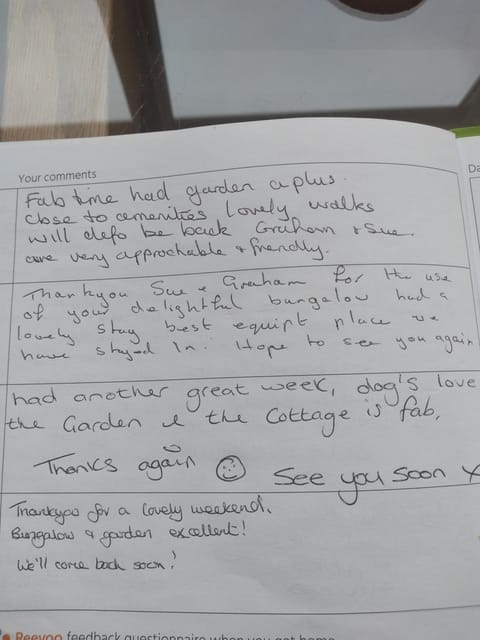 Your comments
Da
Fab time had garden a plus.
close to amenities lovely walks
will defo be back Graham & Sue.
are very approchable & friendly.
Thankyou Sue & Graham for the use
of your delightful bungalow had a
lovely stay best equipt place we
have stayed in. Hope to see you again
had another great week, dog's love
the Garden & the Cottage is fab,
Thanks again ☺ See you soon x
Thankyou for a lovely weekend.
Bungalow & garden excellent!
We'll come back soon!
Reevoo feedback questionnaire when you get home